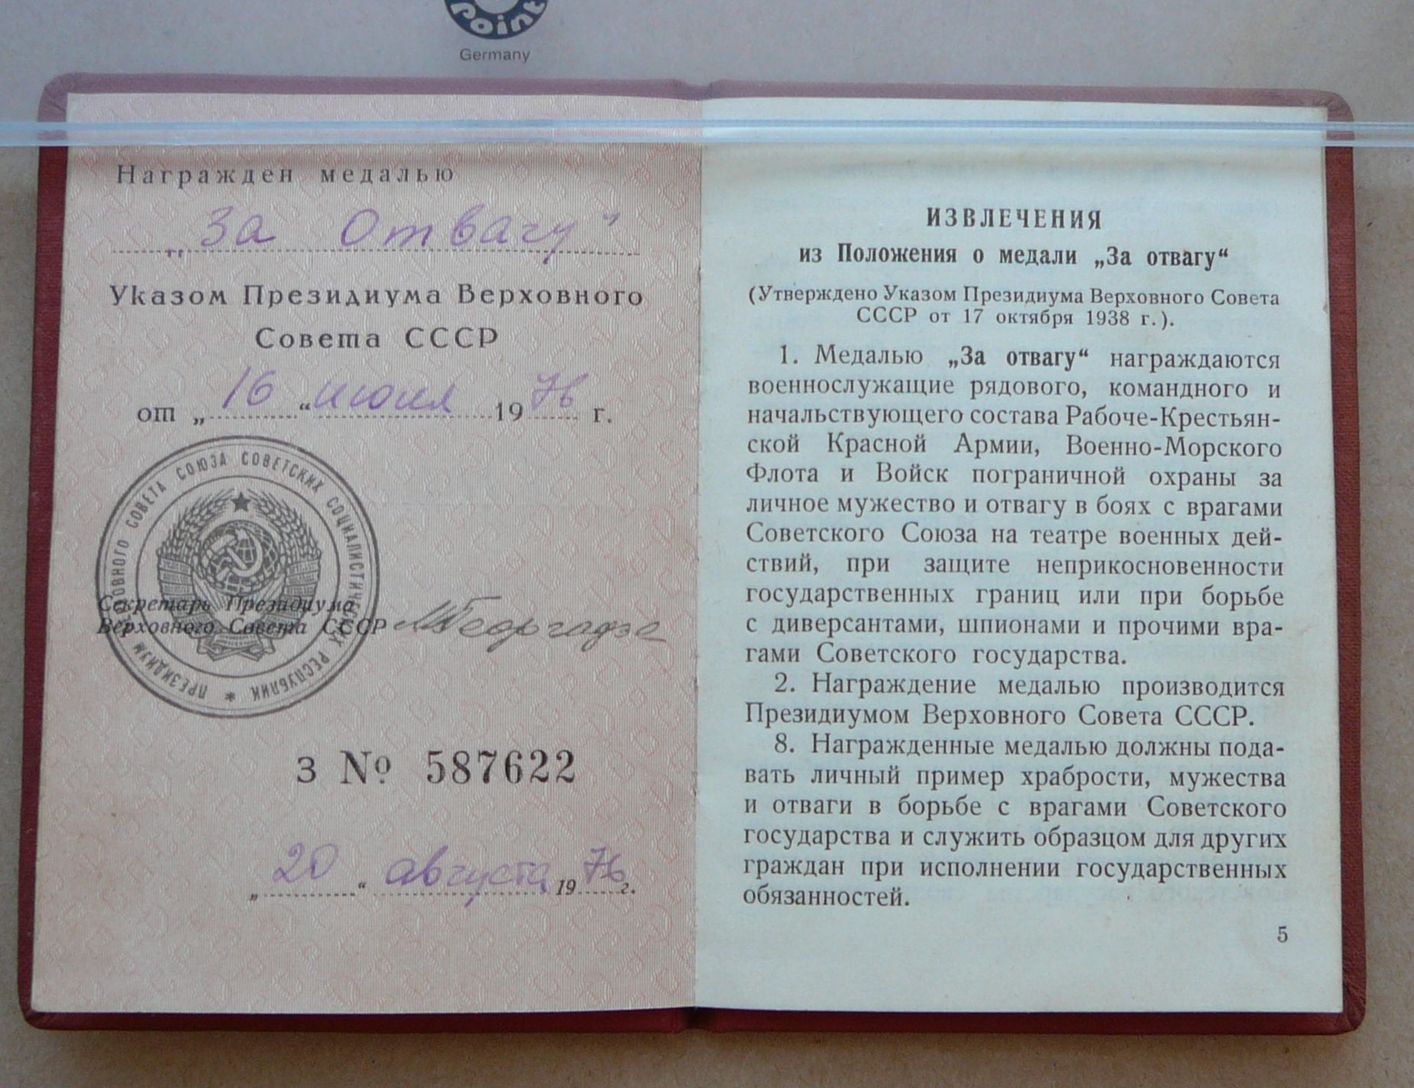 Point
Germany
Награжден медалью
„За Отвагу“
Указом Президиума Верховного
Совета СССР
от „16“ июля 1976 г.
ПРЕЗИДИУМ ВЕРХОВНОГО СОВЕТА СОЮЗА СОВЕТСКИХ СОЦИАЛИСТИЧЕСКИХ РЕСПУБЛИК *
Секретарь Президиума
Верховного Совета СССР МГеоргадзе
З № 587622
„20“ августа 1976 г.
ИЗВЛЕЧЕНИЯ
из Положения о медали „За отвагу“
(Утверждено Указом Президиума Верховного Совета
СССР от 17 октября 1938 г.).
1. Медалью „За отвагу“ награждаются
военнослужащие рядового, командного и
начальствующего состава Рабоче-Крестьян-
ской Красной Армии, Военно-Морского
Флота и Войск пограничной охраны за
личное мужество и отвагу в боях с врагами
Советского Союза на театре военных дей-
ствий, при защите неприкосновенности
государственных границ или при борьбе
с диверсантами, шпионами и прочими вра-
гами Советского государства.
2. Награждение медалью производится
Президиумом Верховного Совета СССР.
8. Награжденные медалью должны пода-
вать личный пример храбрости, мужества
и отваги в борьбе с врагами Советского
государства и служить образцом для других
граждан при исполнении государственных
обязанностей.
5